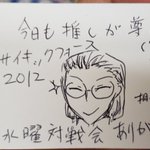 今日も推しが尊
サイキックフォース
2012
水曜対戦会 ありが